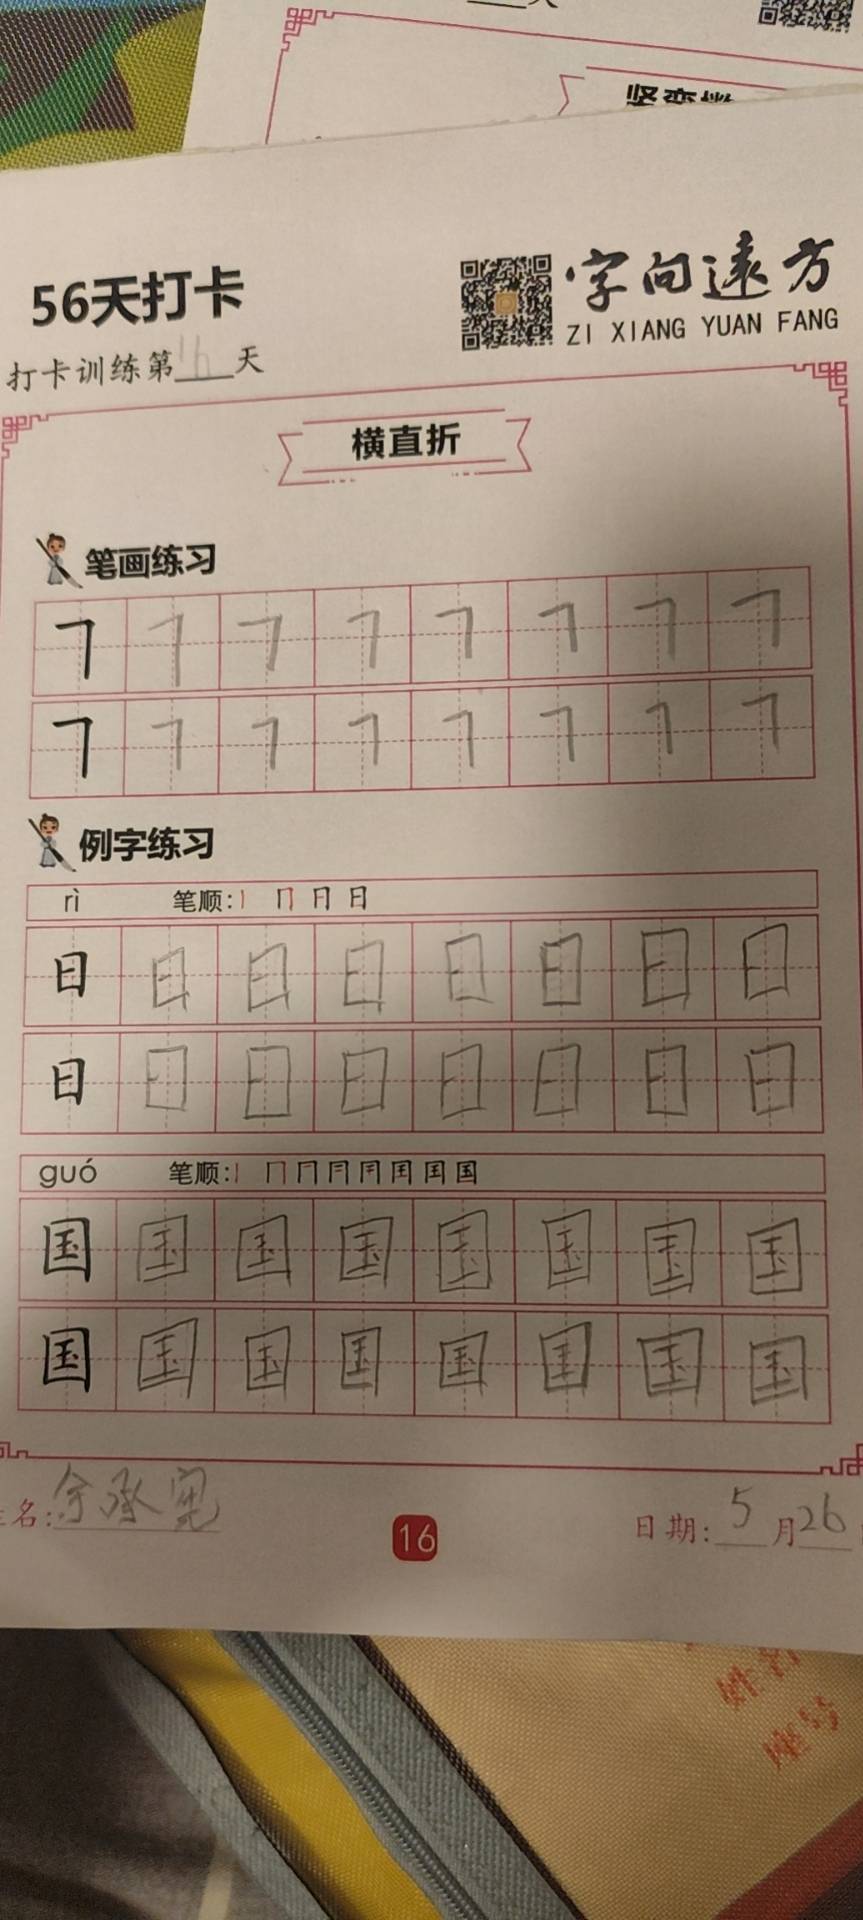 竖弯
56天打卡
字向远方
ZI XIANG YUAN FANG
打卡训练第16天
横直折
笔画练习
例字练习
rì 笔顺:
日 日 日 日 日 日 日 日
日 日 日 日 日 日 日 日
guó 笔顺:
国 国 国 国 国 国 国 国
国 国 国 国 国 国 国 国
名:余承宪
16
日期:5月26
姓名
座号